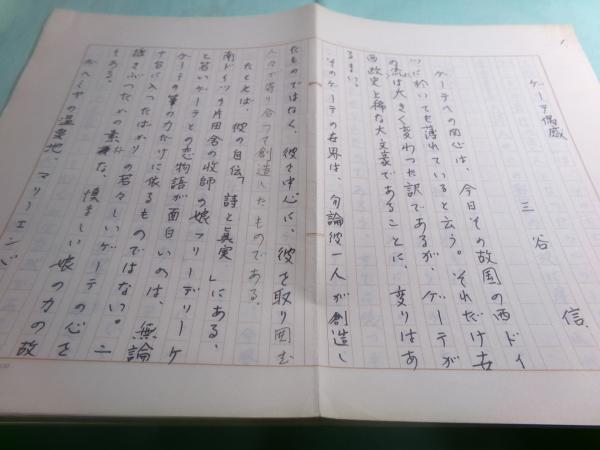 ゲーテ偶感
三谷 信
ゲーテへの関心は、今日その故国の西ドイ
ツに於いても薄れていると云う。それだけ古
の流は大きく変わった訳であるが、ゲーテが
西欧史上稀な大文豪であることに、変りはあ
るまい。
そのゲーテの世界は、勿論彼一人が創造し
たものではなく、彼を中心に、彼を取り囲む
人々で寄り合って創造したものである。
たとえば、彼の自伝「詩と眞実」にある、
南ドイツの片田舎の牧師の娘フリーデリーケ
と若いゲーテとの恋物語が面白いのは、無論
ゲーテの筆の力だけに依るものではない。二
十台に入ったばかりの若々しいゲーテの心を
揺さぶったかの素朴な、慎ましい娘の力の故
である。
ボヘミヤの温泉地、マリーエンバ